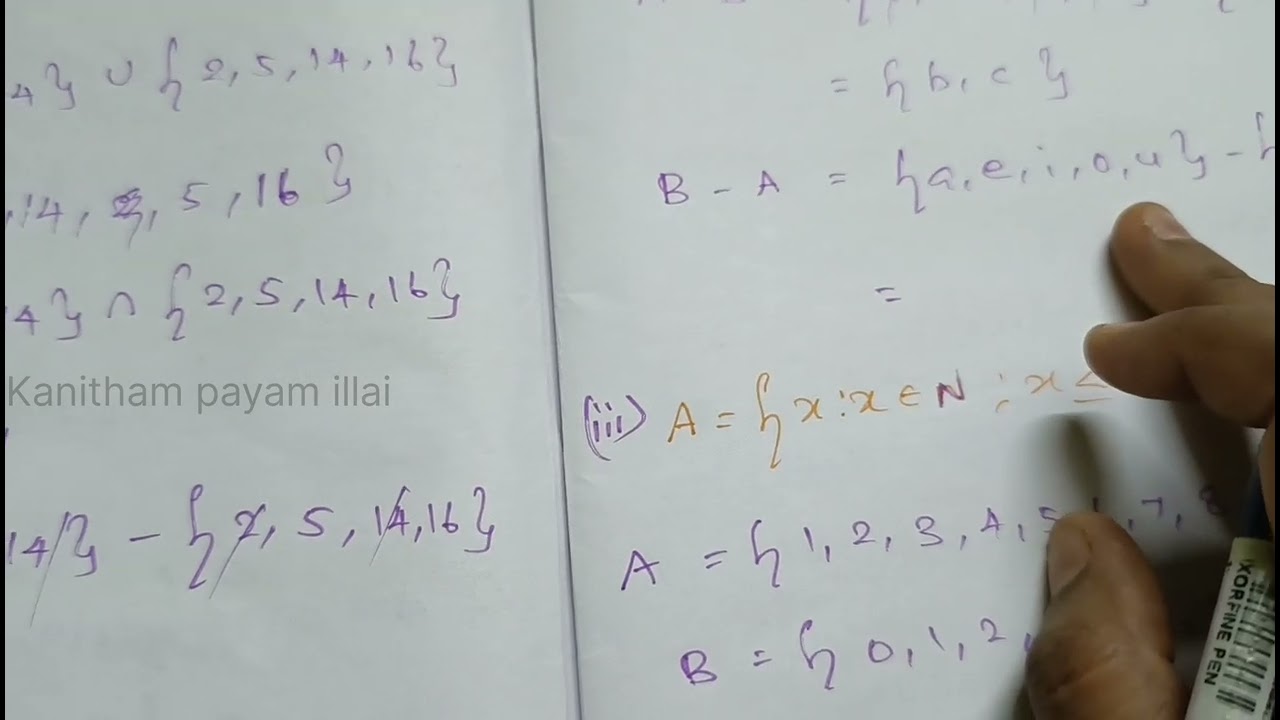 4} ∪ {2, 5, 14, 16}
14, 2, 5, 16}
4} ∩ {2, 5, 14, 16}
Kanitham payam illai
14} - {2, 5, 14, 16}
= {b, c}
B - A = {a, e, i, o, u} - {
=
(iii) A = {x : x ∈ N ; x ≤
A = {1, 2, 3, 4, 5, 6, 7, 8
B = {0, 1, 2,
XORFINE PEN